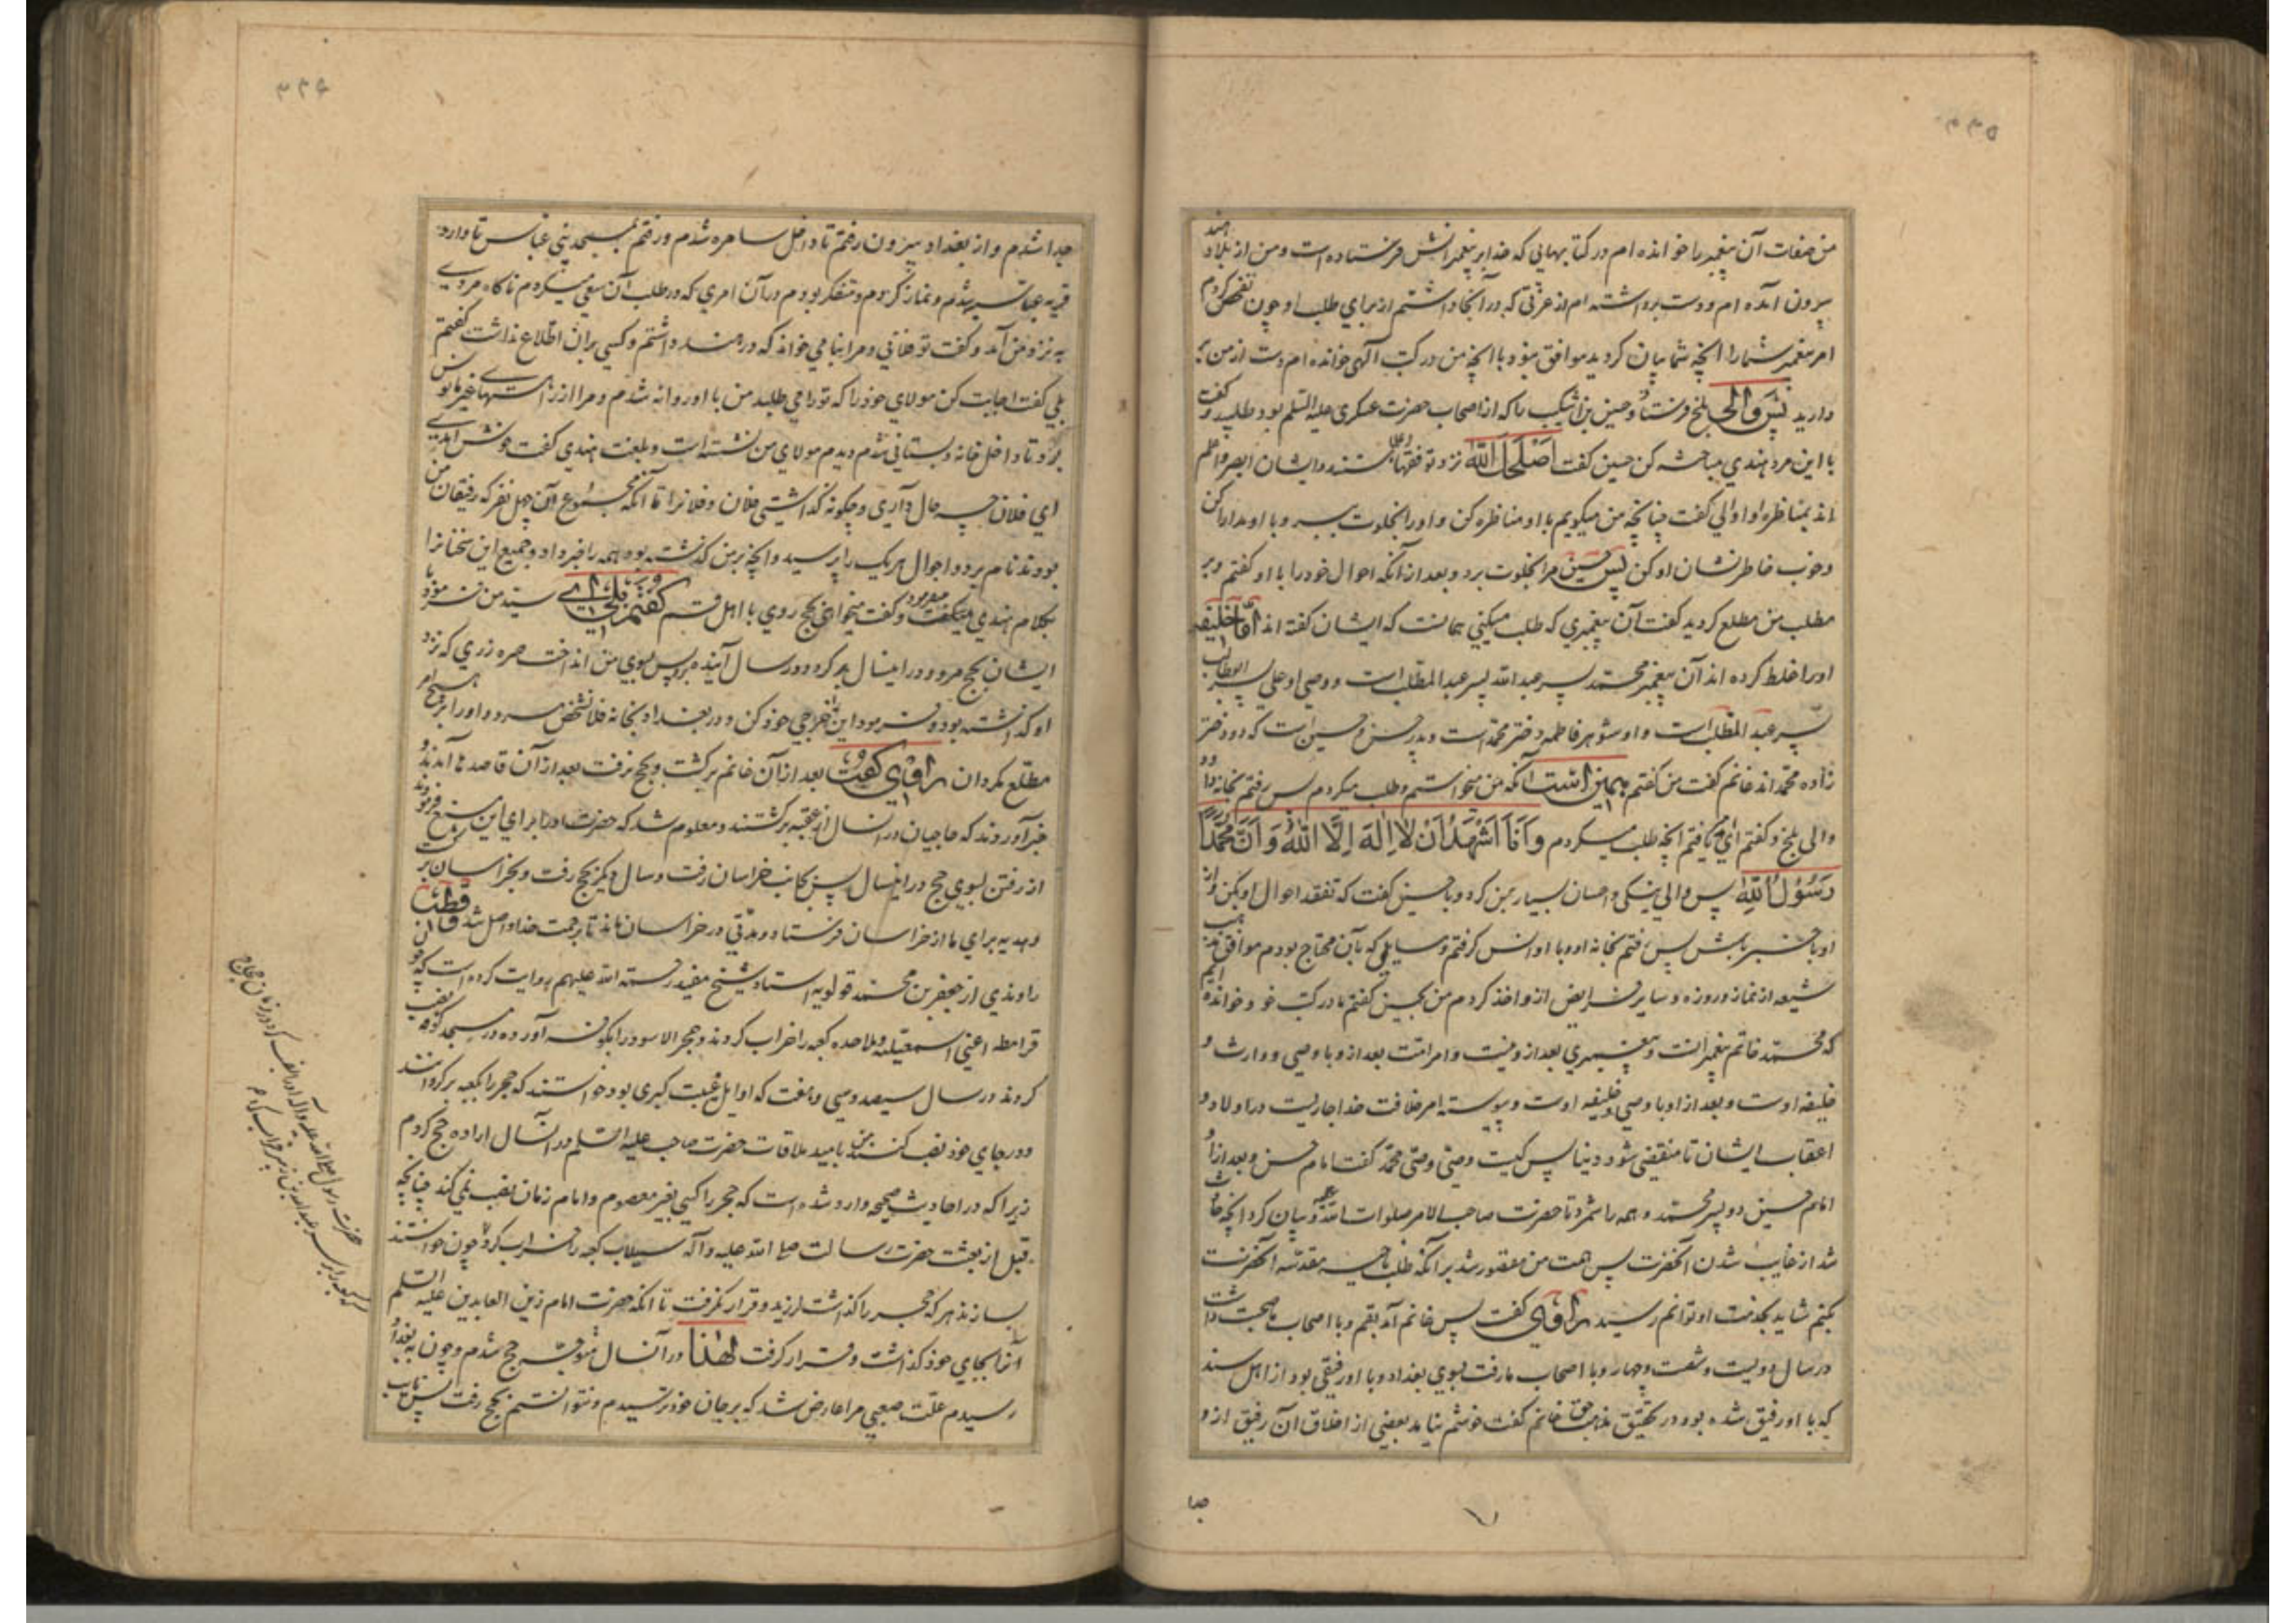 ۳۳۵
من صفات آن پیغمبر را خوانده ام در کتابهایی که خدا بر پیغمبرانش فرستاده است و من از بلاد هند
بیرون آمده ام و دست برداشته ام از عزتی که در آنجا داشتم از برای طلب او چون تفحص کردم
امر پیغمبر شما را آنچه شما بیان کردید موافق نبود با آنچه من در کتب الهی خوانده ام دست از من بر
دارید پس والی بلخ فرستاد و حسین بن اشکیب را که از اصحاب حضرت عسکری علیه السلم بود طلبید و گفت
با این مرد هندی مباحثه کن حسین گفت اصلحک الله نزد تو فقها و علما هستند و ایشان ابصر و اعلم
اند بمناظره او والی گفت چنانچه من میگویم با او مناظره کن و او را بخلوت ببر و با او مدارا کن
و خوب خاطر نشان او کن پس حسین مرا بخلوت برد و بعد از آنکه احوال خود را با او گفتم و بر
مطلب من مطلع کردید گفت آن پیغمبری که طلب میکنی همانست که ایشان گفته اند اما خلیفه
او را غلط کرده اند آن پیغمبر محمد پسر عبد الله پسر عبد المطلب است و وصی او علی پسر ابوطالب
پسر عبد المطلب است و او شوهر فاطمه دختر محمد است و پدر حسن و حسین است که دو دختر
زاده محمد اند غانم گفت من گفتم همین است آنکه من میخواستم و طلب میکردم پس رفتم بخانه داود
والی بلخ و گفتم ای امیر یافتم آنچه طلب میکردم و انا اشهد ان لا اله الا الله و ان محمدا
رسول الله پس والی نیکی و احسان بسیار بمن کرد و با حسین گفت که تفقد احوال او بکن و از
او با خبر باش پس رفتم بخانه او و با او انس گرفتم و مسایلی که بآن محتاج بودم موافق مذهب
شیعه از نماز و روزه و سایر فرایض از او اخذ کردم من بحسین گفتم ما در کتب خود خوانده ایم
که محمد خاتم پیغمبرانست و پیغمبری بعد از و نیست و امر امت بعد از و با وصی و وارث و
خلیفه اوست و بعد از او با وصی و خلیفه اوست و پیوسته امر خلافت خدا جاریست در اولاد و
اعقاب ایشان تا منقضی شود دنیا پس کیست وصی وصی محمد گفت امام حسن و بعد از او
امام حسین دو پسر محمد و همه را شمرد تا حضرت صاحب الامر صلوات الله علیه و بیان کرد آنچه حادث
شد از غایب شدن آنحضرت پس همت من مقصور شد بر آنکه طلب ناحیه مقدسه آنحضرت
بکنم شاید بخدمت او توانم رسید راوی گفت پس غانم آمد بقم و با اصحاب ما صحبت داشت
در سال دویست و شصت و چهار و با اصحاب ما رفت بسوی بغداد و با او رفیقی بود از اهل سند
که با او رفیق شده بود در تحقیق مذهب حق غانم گفت خوشم نیامد بعضی از اخلاق آن رفیق از و
جدا
۳۳۶
جدا شدم و از بغداد بیرون رفتم تا داخل سامره شدم و رفتم بمسجد بنی عباس تا وارد
قریه عباسیه شدم و نماز کردم و متفکر بودم در آن امری که در طلب آن سعی میکردم ناگاه مردی
به نزد من آمد و گفت تو فلانی و مرا بنامی خواند که در هند داشتم و کسی بران اطلاع نداشت گفتم
بلی گفت اجابت کن مولای خود را که تو را می طلبد من با او روانه شدم و مرا از راههای غیر مانوس
برد تا داخل خانه و بستانی شدم دیدم مولای من نشسته است و بلغت هندی گفت خوش آمدی
ای فلان چه حال داری و چگونه گذاشتی فلان و فلانرا تا آنکه مجموع آن چهل نفر که رفیقان من
بودند نام برد و احوال هر یک را پرسید و آنچه بر من گذشته بود همه را خبر داد و جمیع این سخنانرا
بکلام هندی میفرمود و گفت میخواهی بحج روی با اهل قم گفتم بلی ای سید من فرمود با
ایشان بحج مرو و در اینسال بر گرد و در سال آینده برو پس بسوی من انداخت صره زری که نزد
او گذاشته بود و فرمود این را خرجی خود کن و در بغداد بخانه فلان شخص مرو و او را بر هیچ امر
مطلع مگردان راوی گفت بعد از آن غانم برگشت و بحج نرفت بعد از آن قاصدها آمدند و
خبر آوردند که حاجیان در آنسال از عقبه برگشتند و معلوم شد که حضرت او را برای این منع فرمودند
از رفتن بسوی حج در اینسال پس بجانب خراسان رفت و سال دیگر بحج رفت و بخراسان برگشت
و هدیه برای ما از خراسان فرستاد و مدتی در خراسان ماند تا برحمت خدا واصل شد و قطب
راوندی از جعفر بن محمد قولویه استاد شیخ مفید رحمة الله علیهم روایت کرده است که چون
قرامطه اعنی اسمعیلیه و ملاحده کعبه را خراب کردند و حجر الاسود را بکوفه آورده در مسجد کوفه نصب
کردند در سال سیصد و سی و هفت که اوایل غیبت کبری بود خواستند که حجر را بکعبه برگردانند
و در جای خود نصب کنند من بامید ملاقات حضرت صاحب علیه السلم در آنسال اراده حج کردم
زیرا که در احادیث صحیحه وارد شده است که حجر را کسی بغیر معصوم و امام زمان نصب نمی کند چنانچه
قبل از بعثت حضرت رسالت صلی الله علیه و آله سیلاب کعبه را خراب کرد و چون خواستند
بسازند هر که حجر را گذاشت لرزید و قرار نگرفت تا آنکه حضرت امام زین العابدین علیه السلم
آنرا بجای خود گذاشت و قرار گرفت لهذا در آنسال متوجه حج شدم و چون به بغداد
رسیدم علت صعبی مرا عارض شد که بر جان خود ترسیدم و نتوانستم بحج رفت پس نایب
حضرت رسول صلی الله علیه و آله آنرا نصب کرد و در زمان حجاج